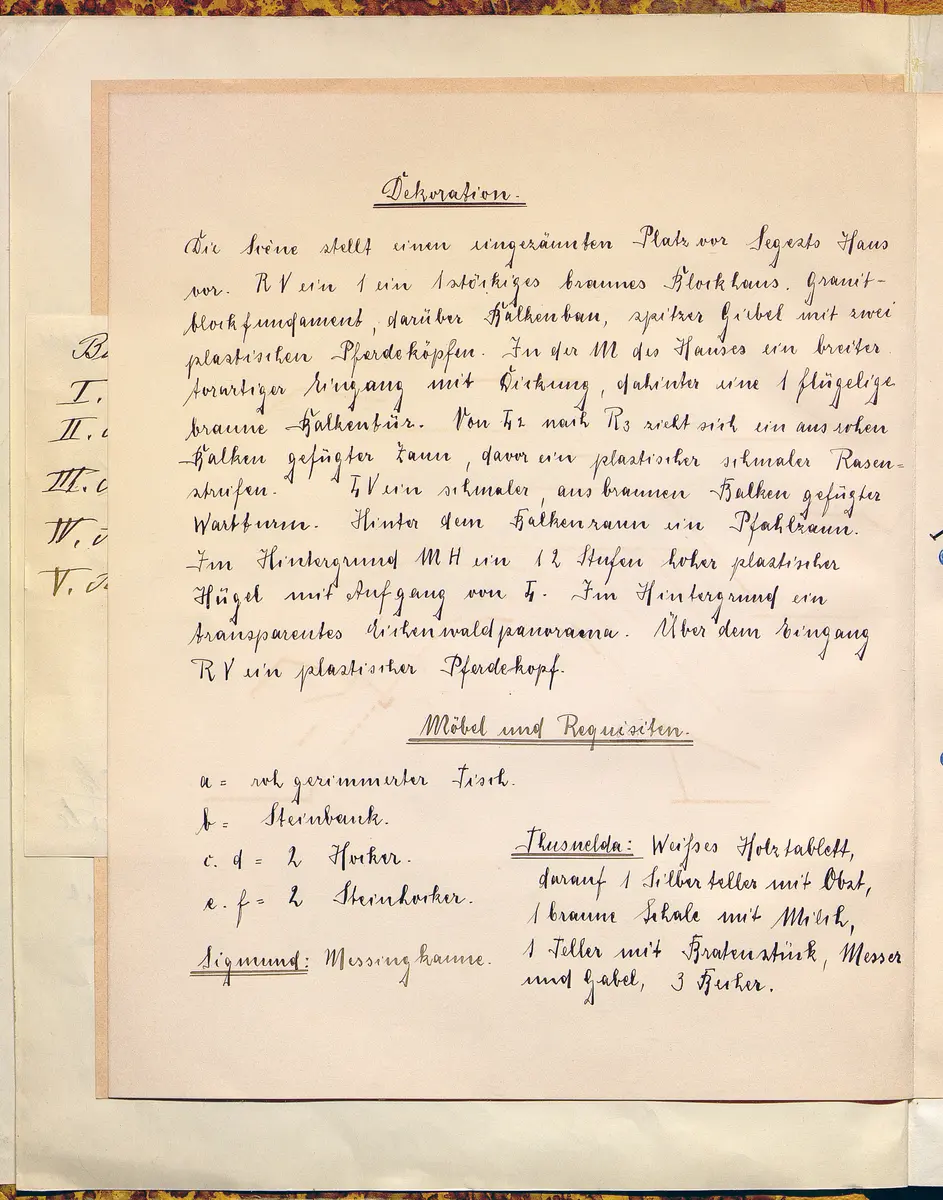 Dekoration.
Die Scène stellt einen eingezäunten Platz vor Segests Haus
vor. RV ein 1 ein 1stöckiges braunes Blockhaus. Granit-
blockfundament, darüber Balkenbau, spitzer Giebel mit zwei
plastischen Pferdeköpfen. In der M des Hauses ein breiter
torartiger Eingang mit Dickung, dahinter eine 1 flügelige
braune Balkentür. Von L2 nach R3 zieht sich ein aus rohen
Balken gefügter Zaun, davor ein plastischer schmaler Rasen=
streifen. LV ein schmaler, aus braunen Balken gefügter
Wartturm. Hinter dem Balkenzaun ein Pfahlzaun.
Im Hintergrund MH ein 12 Stufen hoher plastischer
Hügel mit Aufgang von L. Im Hintergrund ein
transparentes Eichenwaldpanorama. Über dem Eingang
RV ein plastischer Pferdekopf.
Möbel und Requisiten.
a = roh gezimmerter Tisch.
b = Steinbank.
c. d = 2 Hocker.
e. f = 2 Steinhocker.
Sigmund: Messingkanne.
Thusnelda: Weißes Holztablett,
darauf 1 Silberteller mit Obst,
1 braune Schale mit Milch,
1 Teller mit Bratenstück, Messer
und Gabel, 3 Becher.
I.
II.
III.
IV.
V.